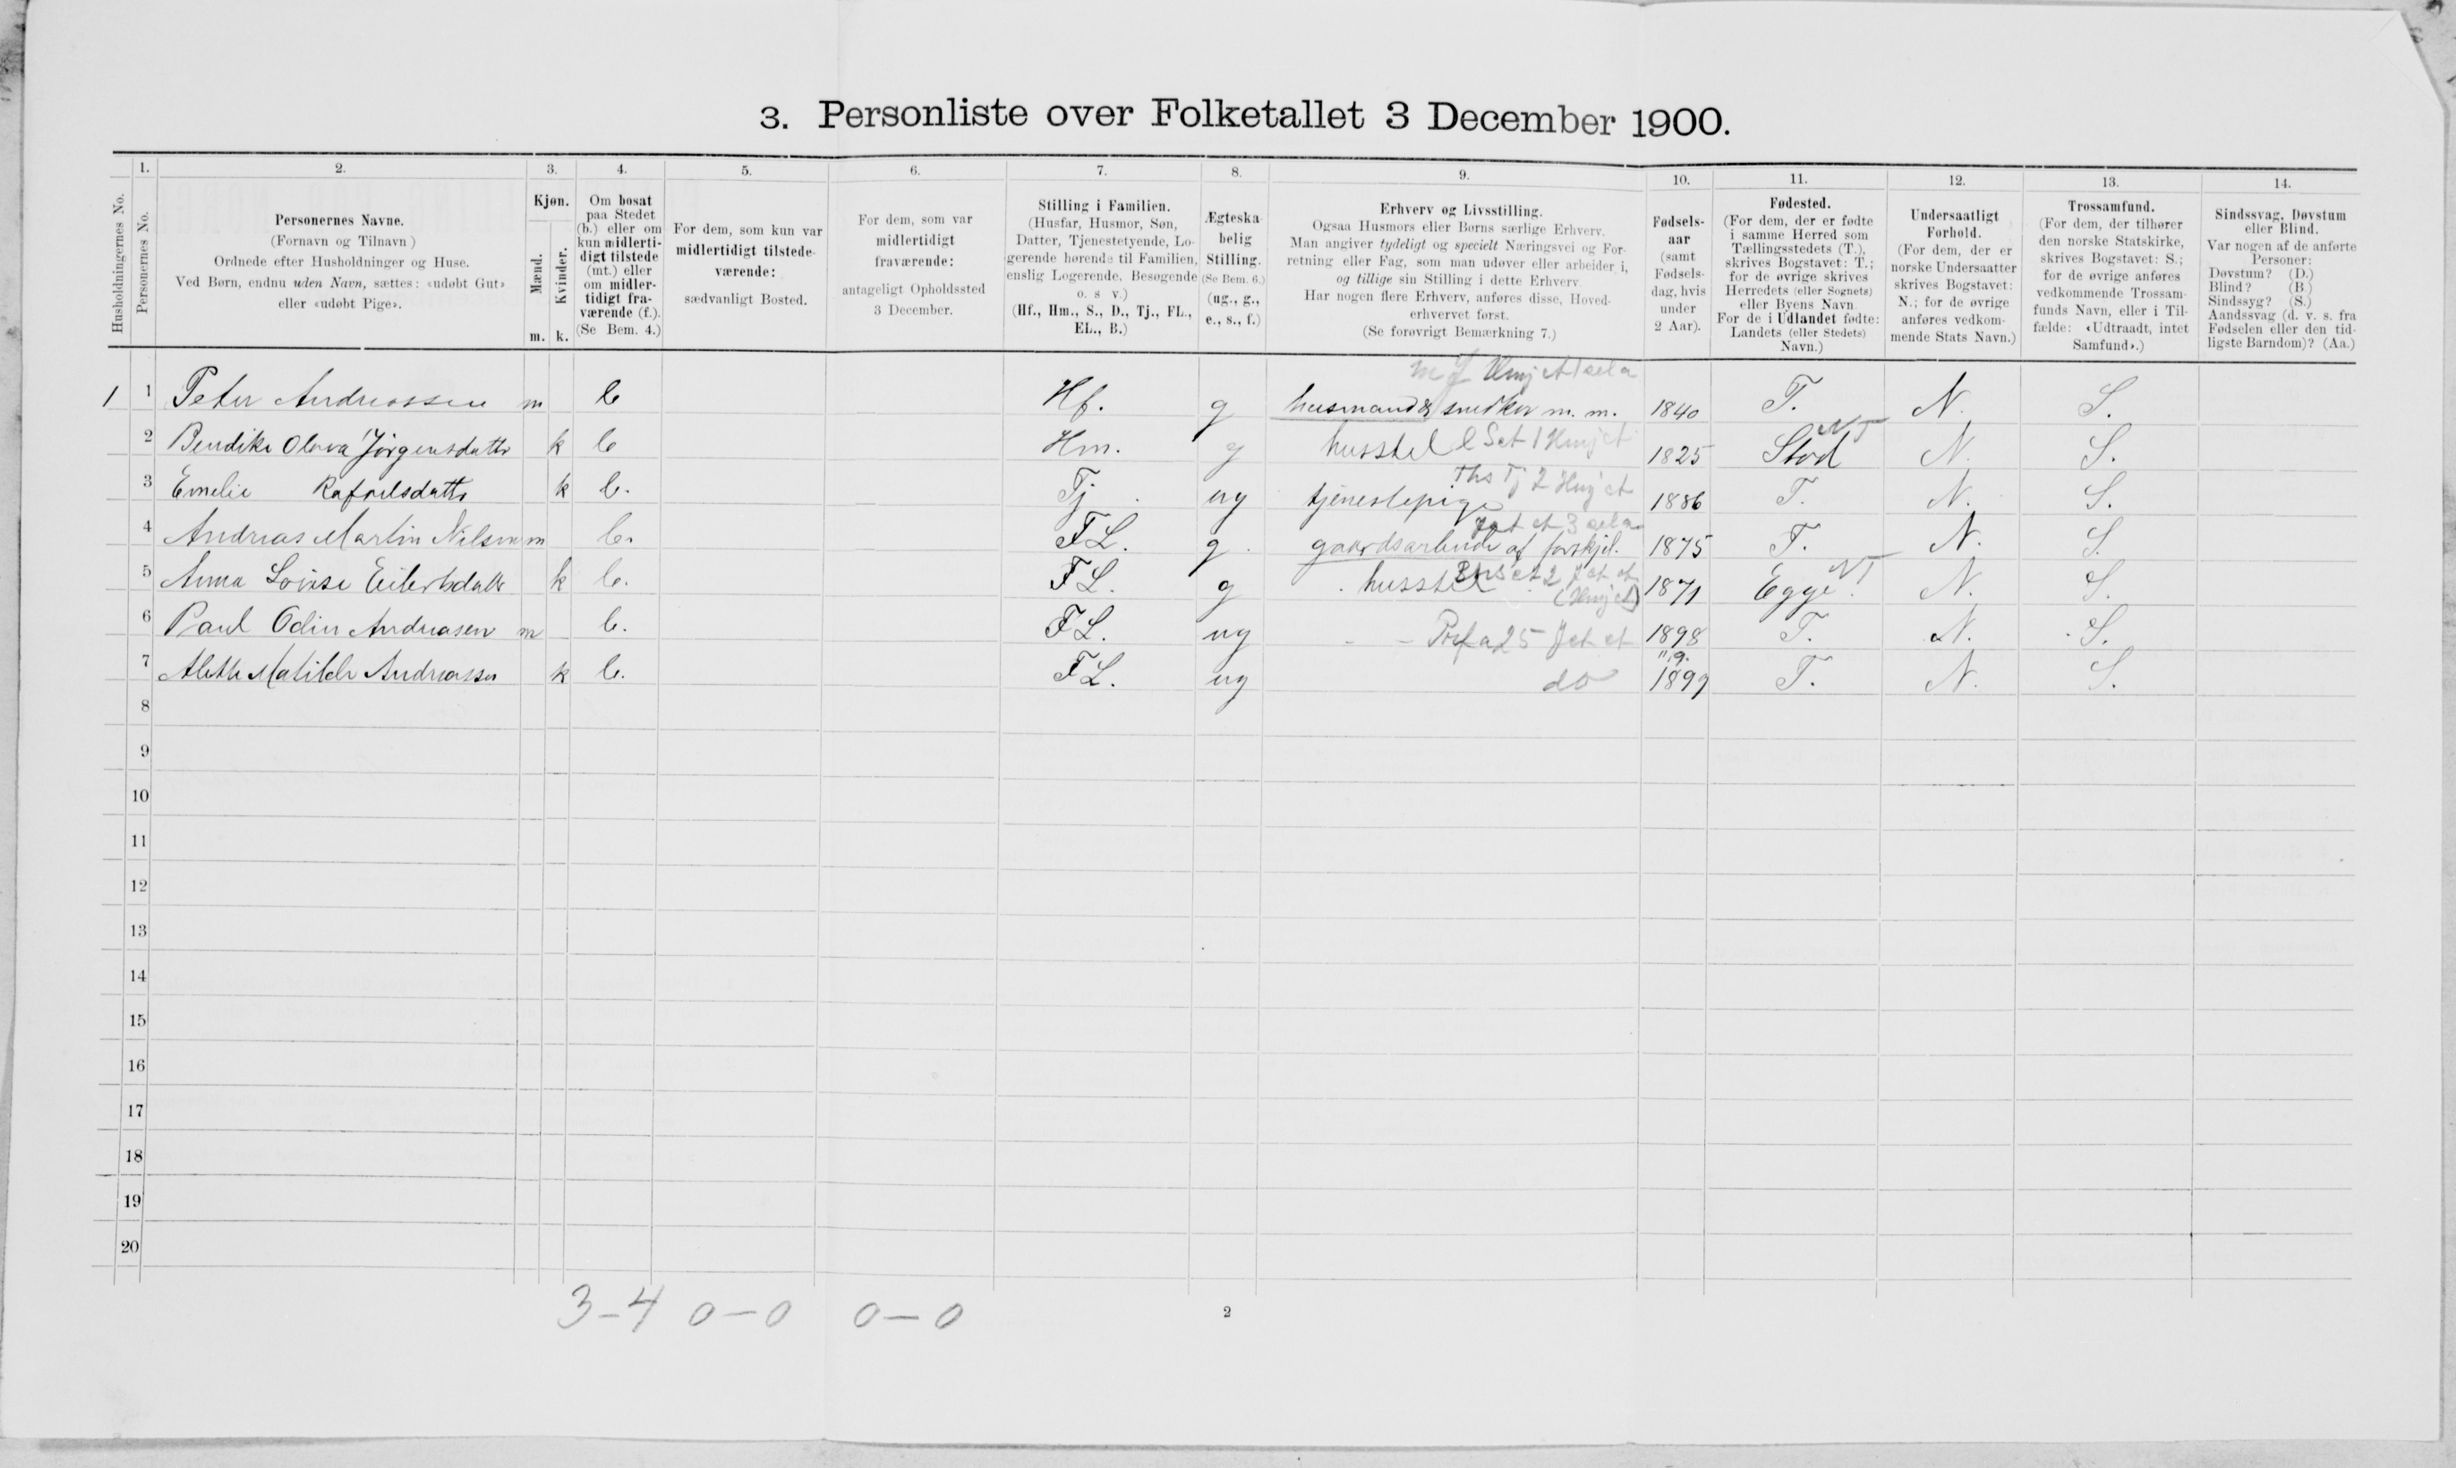 3. Personliste over Folketallet 3 December 1900.
1. 2. 3. 4. 5. 6. 7. 8. 9. 10. 11. 12. 13. 14.
Husholdningernes No.
Personernes No.
Personernes Navne.
(Fornavn og Tilnavn)
Ordnede efter Husholdninger og Huse.
Ved Børn, endnu uden Navn, sættes: «udøbt Gut»
eller «udøbt Pige».
Kjøn.
Mænd.
Kvinder.
m. k.
Om bosat
paa Stedet
(b.) eller om
kun midlerti-
digt tilstede
(mt.) eller
om midler-
tidigt fra-
værende (f.).
(Se Bem. 4.)
For dem, som kun var
midlertidigt tilstede-
værende:
sædvanligt Bosted.
For dem, som var
midlertidigt
fraværende:
antageligt Opholdssted
3 December.
Stilling i Familien.
(Husfar, Husmor, Søn,
Datter, Tjenestetyende, Lo-
gerende hørende til Familien,
enslig Logerende, Besøgende
o. s v.)
(Hf., Hm., S., D., Tj., FL.,
EL., B.)
Ægteska-
belig
Stilling.
(Se Bem. 6.)
(ug., g.,
e., s., f.)
Erhverv og Livsstilling.
Ogsaa Husmors eller Børns særlige Erhverv.
Man angiver tydeligt og specielt Næringsvei og For-
retning eller Fag, som man udøver eller arbeider i,
og tillige sin Stilling i dette Erhverv.
Har nogen flere Erhverv, anføres disse, Hoved-
erhvervet først.
(Se forøvrigt Bemærkning 7.)
Fødsels-
aar
(samt
Fødsels-
dag, hvis
under
2 Aar).
Fødested.
(For dem, der er fødte
i samme Herred som
Tællingsstedets (T.),
skrives Bogstavet: T.;
for de øvrige skrives
Herredets (eller Sognets)
eller Byens Navn
For de i Udlandet fødte:
Landets (eller Stedets)
Navn.)
Undersaatligt
Forhold.
(For dem, der er
norske Undersaatter
skrives Bogstavet:
N.; for de øvrige
anføres vedkom-
mende Stats Navn.)
Trossamfund.
(For dem, der tilhører
den norske Statskirke,
skrives Bogstavet: S.;
for de øvrige anføres
vedkommende Trossam-
funds Navn, eller i Til-
fælde: «Udtraadt, intet
Samfund».)
Sindssvag, Døvstum
eller Blind.
Var nogen af de anførte
Personer:
Døvstum? (D.)
Blind? (B.)
Sindssyg? (S.)
Aandssvag (d. v. s. fra
Fødselen eller den tid-
ligste Barndom)? (Aa.)
1 1 Peter Andreassen m b Hf. g husmand & snedker m. m. 1840 T. N. S.
2 Bendikt Olava Jörgensdatter k b Hm. g husstel 1825 Stod NT N. S.
3 Emelie Rafaelsdatter k b. Tj. ug tjenestepige 1886 T. N. S.
4 Andreas Martin Nilsen m b. FL. g. gaardsarbeide af forskjel. 1875 T. N. S.
5 Anna Lovise Eilertsdatter k b. FL. g husstel 1871 Egge. NT N. S.
6 Paul Odin Andreasen m b. FL. ug 1898 T. N. S.
7 Alette Matilde Andreassen k b. FL. ug do 11/9. 1899 T. N. S.
8
9
10
11
12
13
14
15
16
17
18
19
20
3-4 0-0 0-0
2